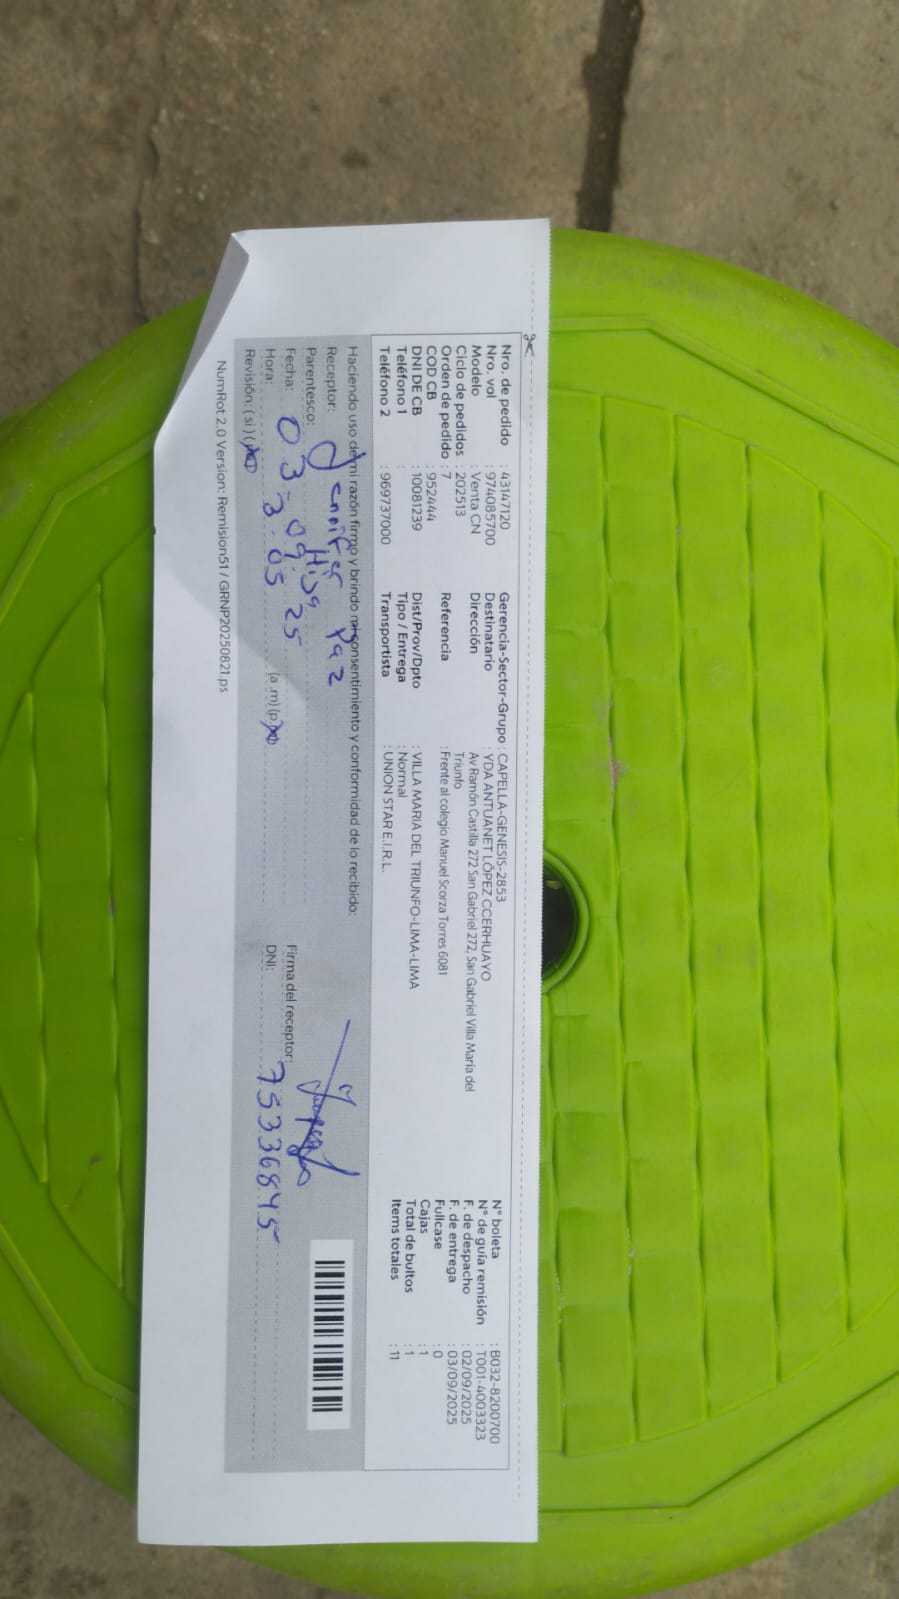 Nro. de pedido : 43147120
Nro. vol : 974085700
Modelo : Venta CN
Ciclo de pedidos : 202513
Orden de pedido : 7
COD CB : 952444
DNI DE CB : 10081239
Teléfono 1 :
Teléfono 2 : 969737000
Gerencia-Sector-Grupo : CAPELLA-GENESIS-2853
Destinatario : YDA ANTUANET LÓPEZ CCERHUAYO
Dirección : Av Ramón Castilla 272 San Gabriel 272, San Gabriel Villa María del
Triunfo
Referencia : Frente al colegio Manuel Scorza Torres 6081
Dist/Prov/Dpto : VILLA MARIA DEL TRIUNFO-LIMA-LIMA
Tipo / Entrega : Normal
Transportista : UNION STAR E.I.R.L.
N° boleta : B032-8200700
N° de guía remisión : T001-4003323
F. de despacho : 02/09/2025
F. de entrega : 03/09/2025
Fullcase : 0
Cajas : 1
Total de bultos : 1
Items totales : 11
Haciendo uso de mi razón firmo y brindo mi consentimiento y conformidad de lo recibido:
Receptor: Jennifer Paz
Parentesco: Hija
Fecha: 03-09-25
Hora: 3:05 (a.m) (p.m)
Revisión: ( si ) (no)
Firma del receptor:
DNI: 75336845
NumRot 2.0 Version: Remision51 / GRNP20250821.ps